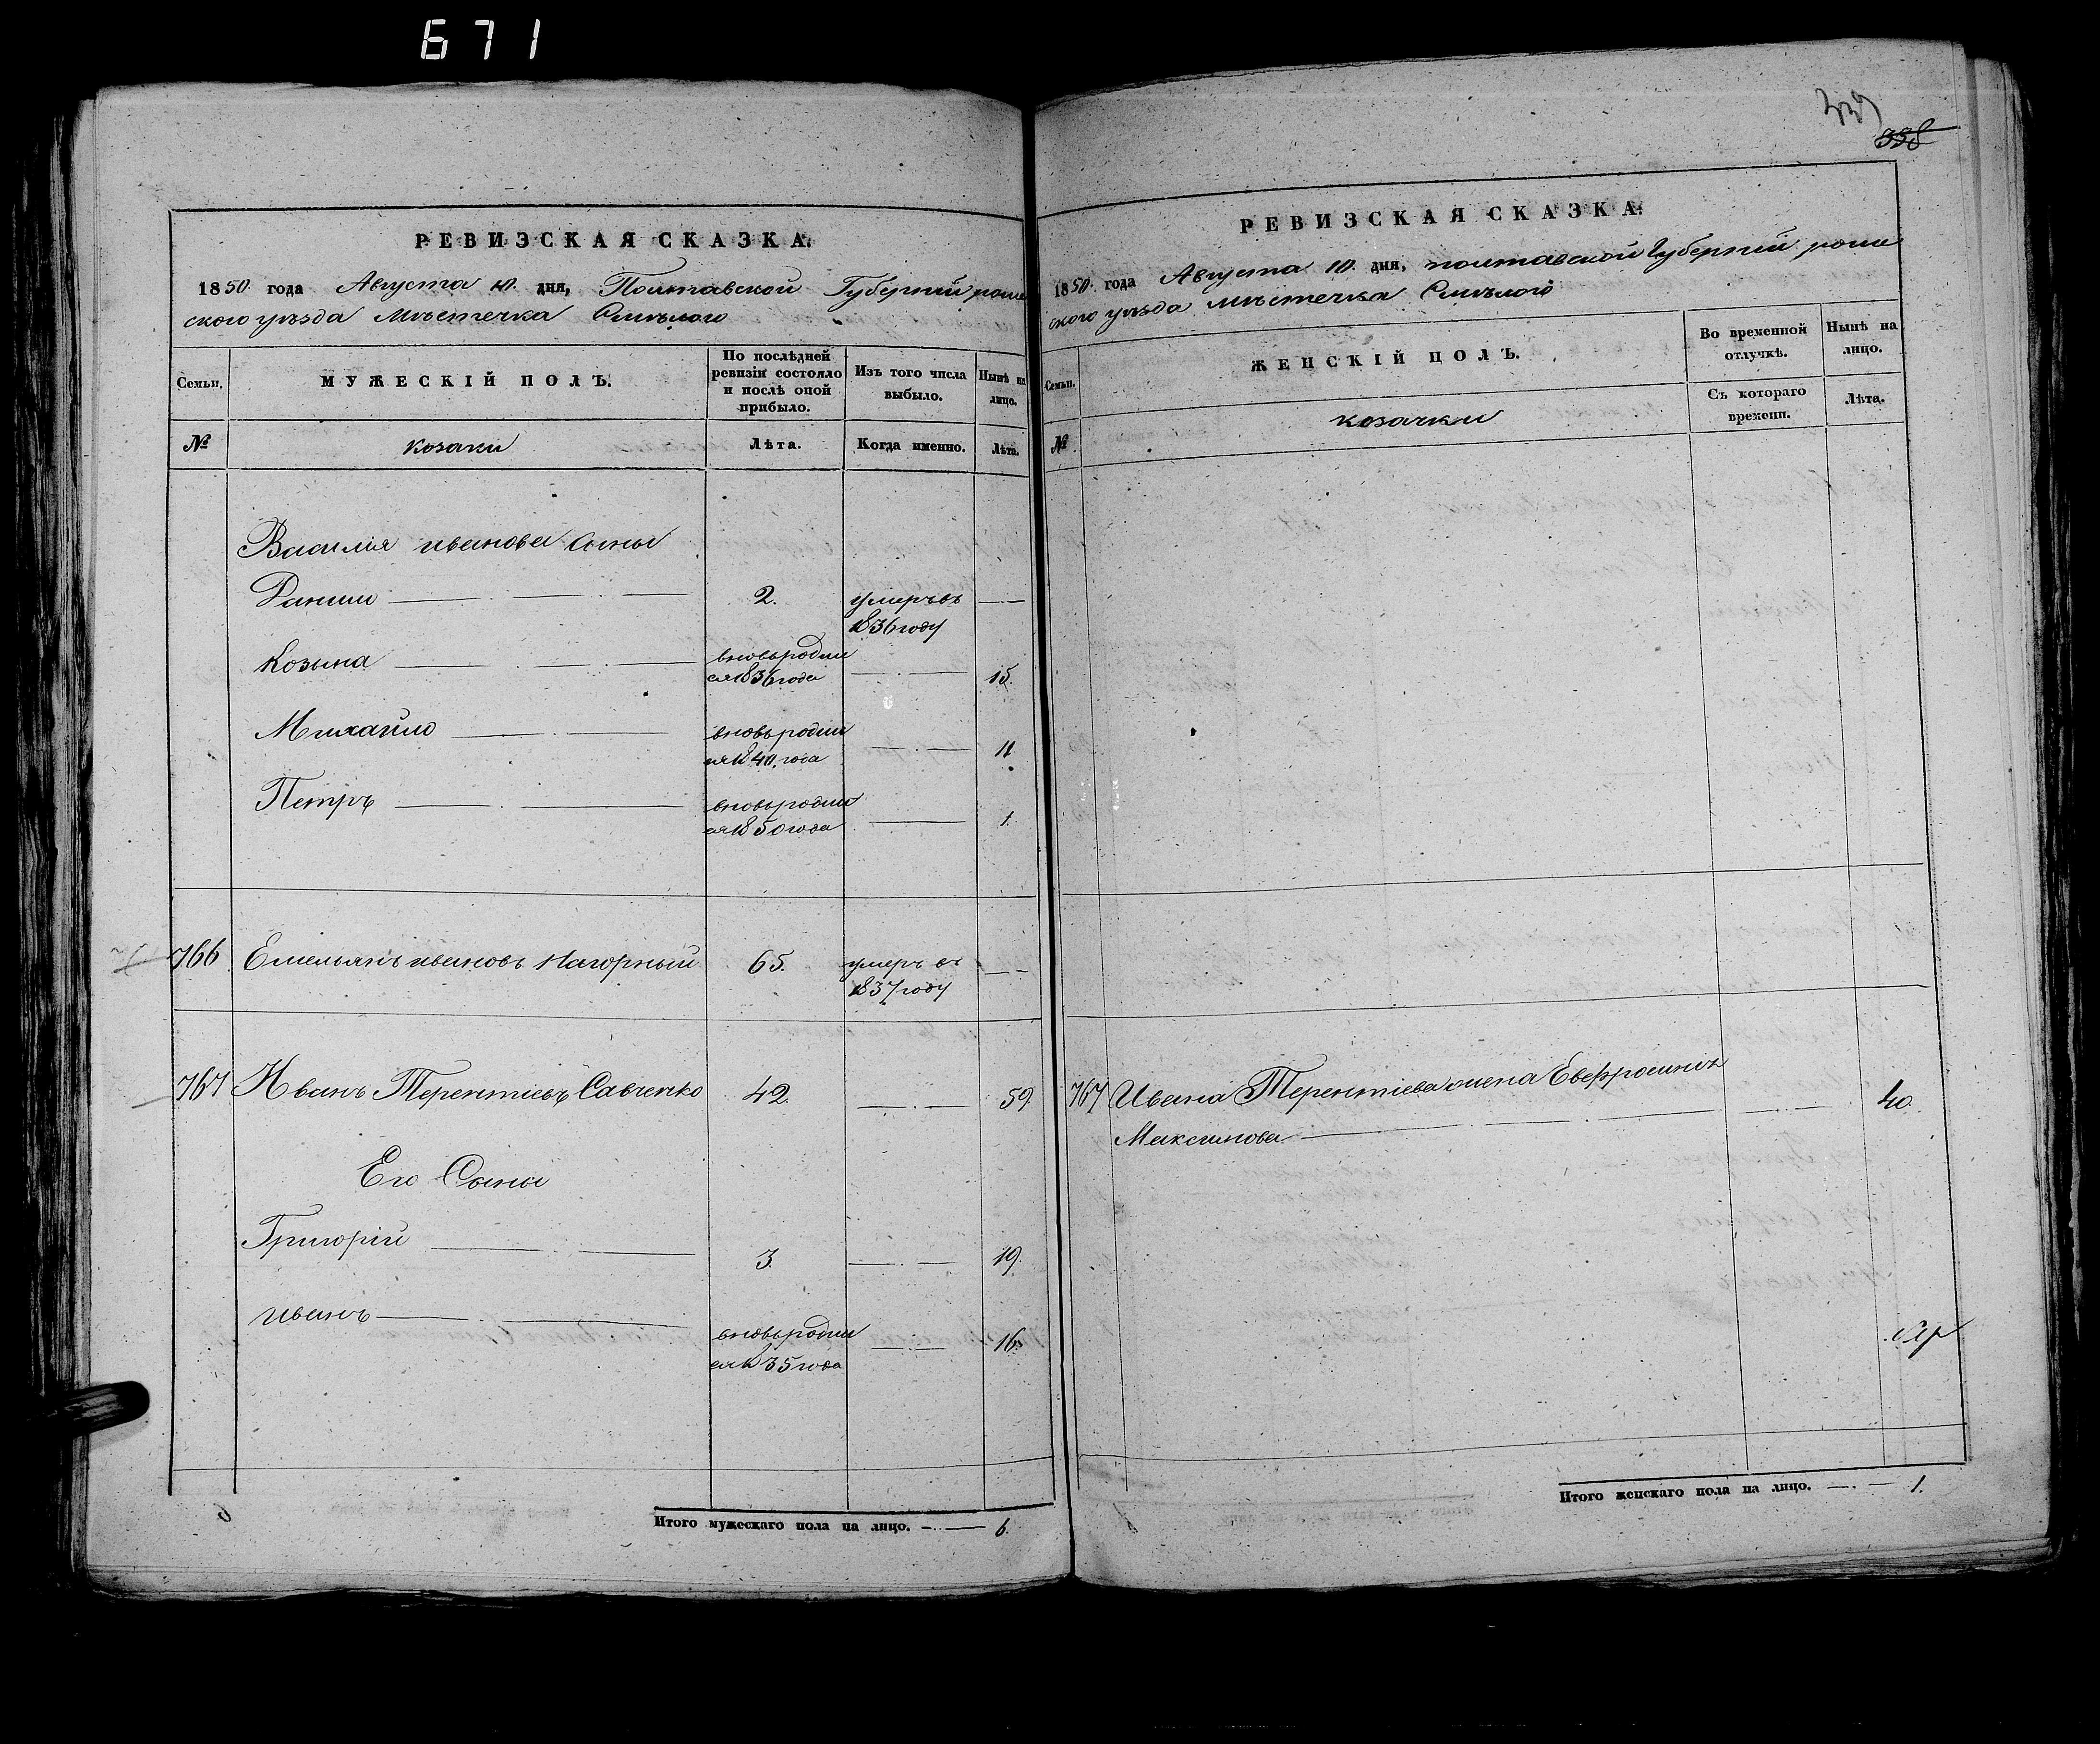 671
339
338
РЕВИЗСКАЯ СКАЗКА.
1850 года Августа 10 дня, Полтавской Губерній роме
ского уѣзда Мѣстечка Смѣлого
Семьи.
МУЖЕСКІЙ ПОЛЪ.
По послѣдней
ревизіи состояло
и послѣ оной
прибыло.
Изъ того числа
выбыло.
Нынѣ на
лицо.
№
козаки
Лѣта.
Когда именно.
Лѣта.
Василія иванова сыны
Данило
2.
умеръ въ
1836 году
Козьма
вновь родил
ся 1836 года
15.
Михайло
вновь родил
ся 1840 года
11
Петръ
вновь родил
ся 1850 года
1.
766 Емельянъ ивановъ Нагорный 65. умеръ въ
1837 году
767 Иванъ Терентіевъ Савченко 42. 59.
Его Сыны
Григорій 3. 19.
иванъ
вновь родил
ся 1835 года
16.
Итого мужескаго пола на лицо. 6.
РЕВИЗСКАЯ СКАЗКА.
1850 года Августа 10 дня, полтавской Губерній роме
ского уѣзда Мѣстечка Смѣлого
Семьи.
ЖЕНСКІЙ ПОЛЪ.
Во временной
отлучкѣ.
Нынѣ на
лицо.
Съ котораго
времени.
Лѣта.
№
козачки
767 Ивана Терентіева жена Евфросинія
Максимова
40.
Итого женскаго пола на лицо. 1.